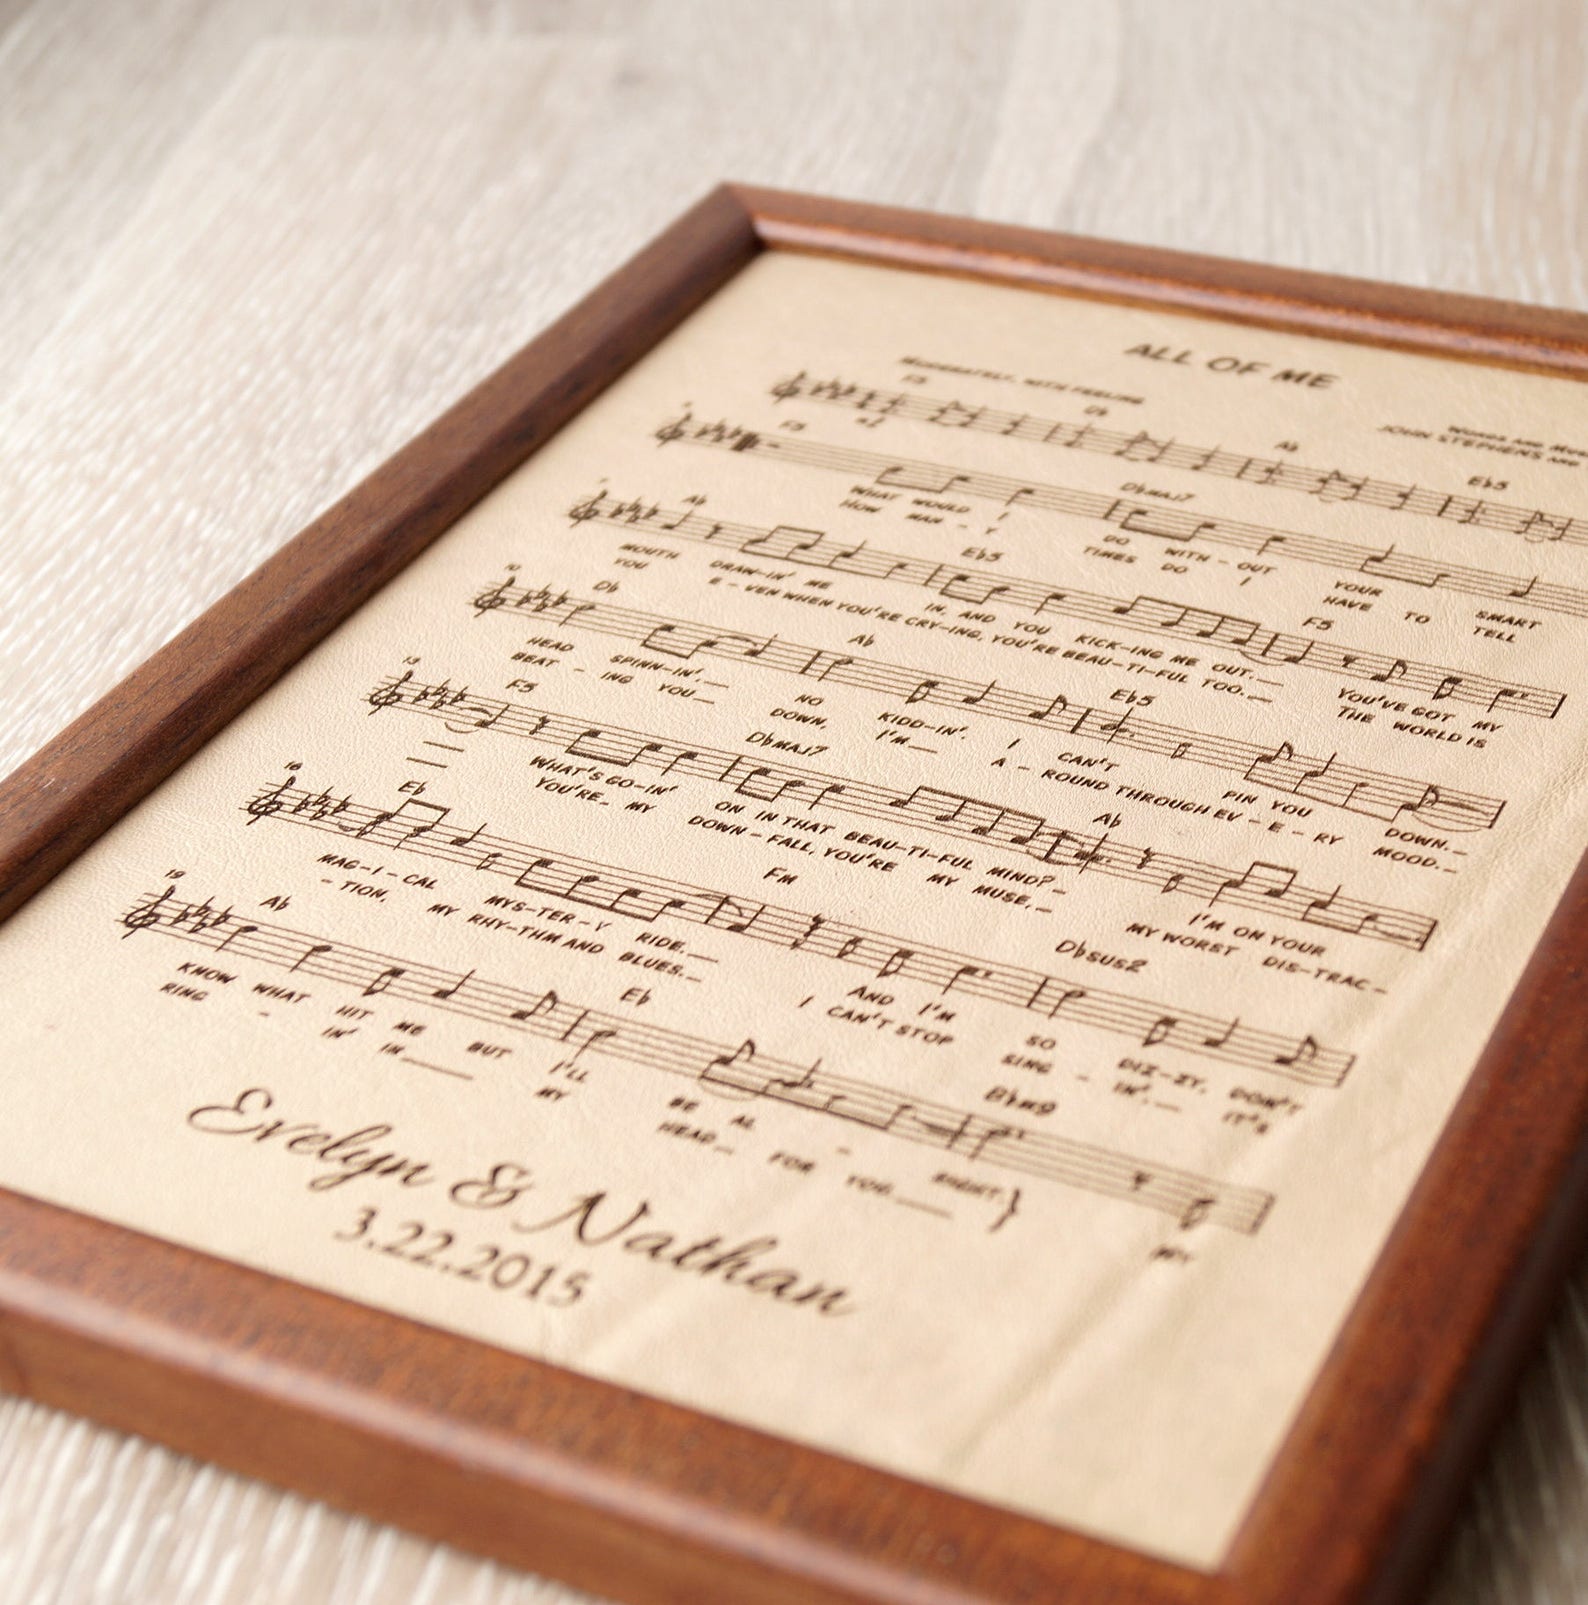 ALL OF ME
MODERATELY, WITH FEELING
WORDS AND
JOHN STEPHENS AND
F5 D♭ A♭ E♭5
F5 D♭MAJ7
WHAT WOULD I DO WITH - OUT YOUR SMART
HOW MAN - Y TIMES DO I HAVE TO TELL
A♭ E♭5 F5
MOUTH DRAW-IN' ME IN, AND YOU KICK-ING ME OUT. YOU'VE GOT MY
YOU E - VEN WHEN YOU'RE CRY-ING, YOU'RE BEAU-TI-FUL TOO. THE WORLD IS
10 D♭ A♭ E♭5
HEAD SPINN-IN', NO KIDD-IN', I CAN'T PIN YOU DOWN.
BEAT - ING YOU DOWN, I'M A - ROUND THROUGH EV - E - RY MOOD.
13 F5 D♭MAJ7 A♭
WHAT'S GO-IN' ON IN THAT BEAU-TI-FUL MIND? I'M ON YOUR
YOU'RE MY DOWN - FALL, YOU'RE MY MUSE, MY WORST DIS-TRAC-
16 E♭ FM D♭SUS2
MAG-I-CAL MYS-TER-Y RIDE. AND I'M SO DIZ-ZY, DON'T
- TION, MY RHY-THM AND BLUES. I CAN'T STOP SING - IN'. IT'S
19 A♭ E♭ B♭M9
KNOW WHAT HIT ME BUT I'LL BE AL - RIGHT.
RING - IN' IN MY HEAD FOR YOU. MY
Evelyn & Nathan
3.22.2015